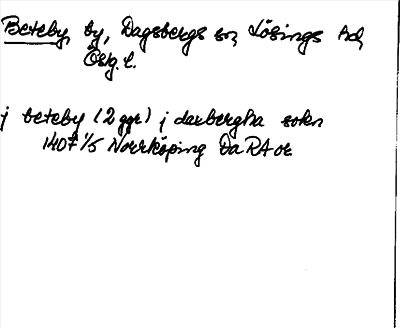 Beteby, by, Dagsbergs sn, Lösings hd,
Östg. l.
j beteby (2 ggr) j daxbergha sokn
1407 1/5 Norrköping Da RA or.